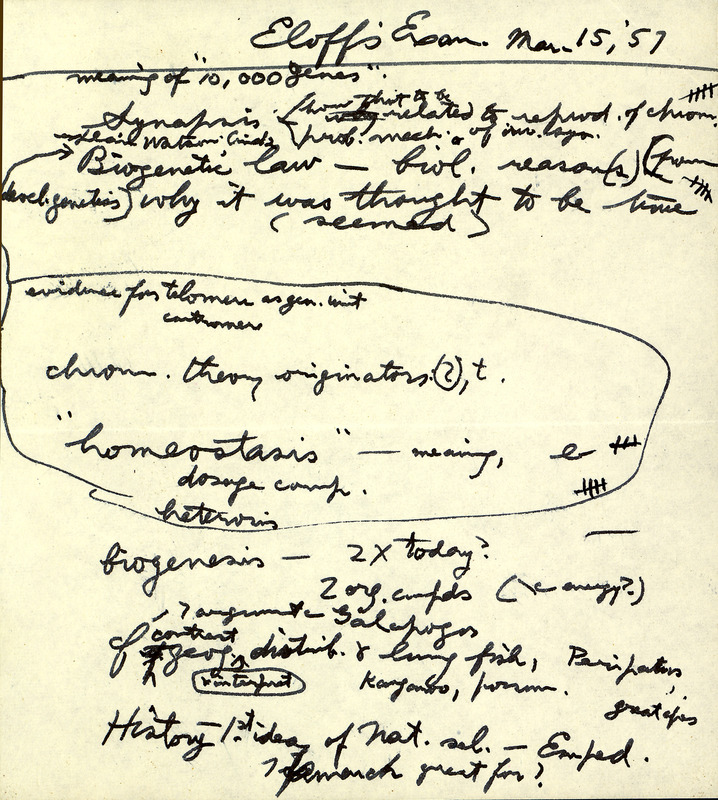 Eloff's Exam. Mar. 15, '57
meaning of "10,000 genes".
Synapsis. (how related to reprod. of chrom.
explain Watson Crick prob. mech. of inv. syn.
Biogenetic law — biol. reason(s) (from
devel. genetics) why it was thought to be true
(seemed)
evidence for telomere as gen. unit
centromere
chrom. theory originators (2), t.
"homeostasis" — meaning, e
dosage comp.
heterosis
biogenesis — 2X today?
2 org. cmpds (energy?)
7 arguments Galapagos
contrast
of geog. distrib. of lung fish, Peripatus,
interpret Kangaroo, possum.
great apes
History 1st idea of Nat. sel. — Emped.
? Lamarck great for?